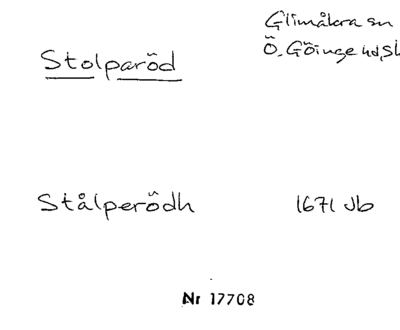 Glimåkra sn
Stolparöd
Ö. Göinge hd, Sk
Stålperödh 1671 Jb
Nr 17708